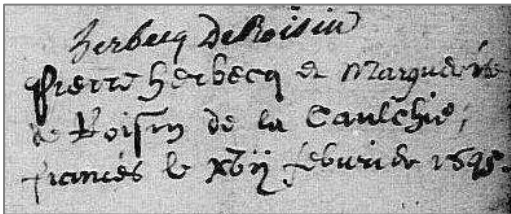 herbecq de Roisin
Pierre herbecq et Marguerite
de Roisin de la Caulchie,
fiancés le xbij feburier 1695.